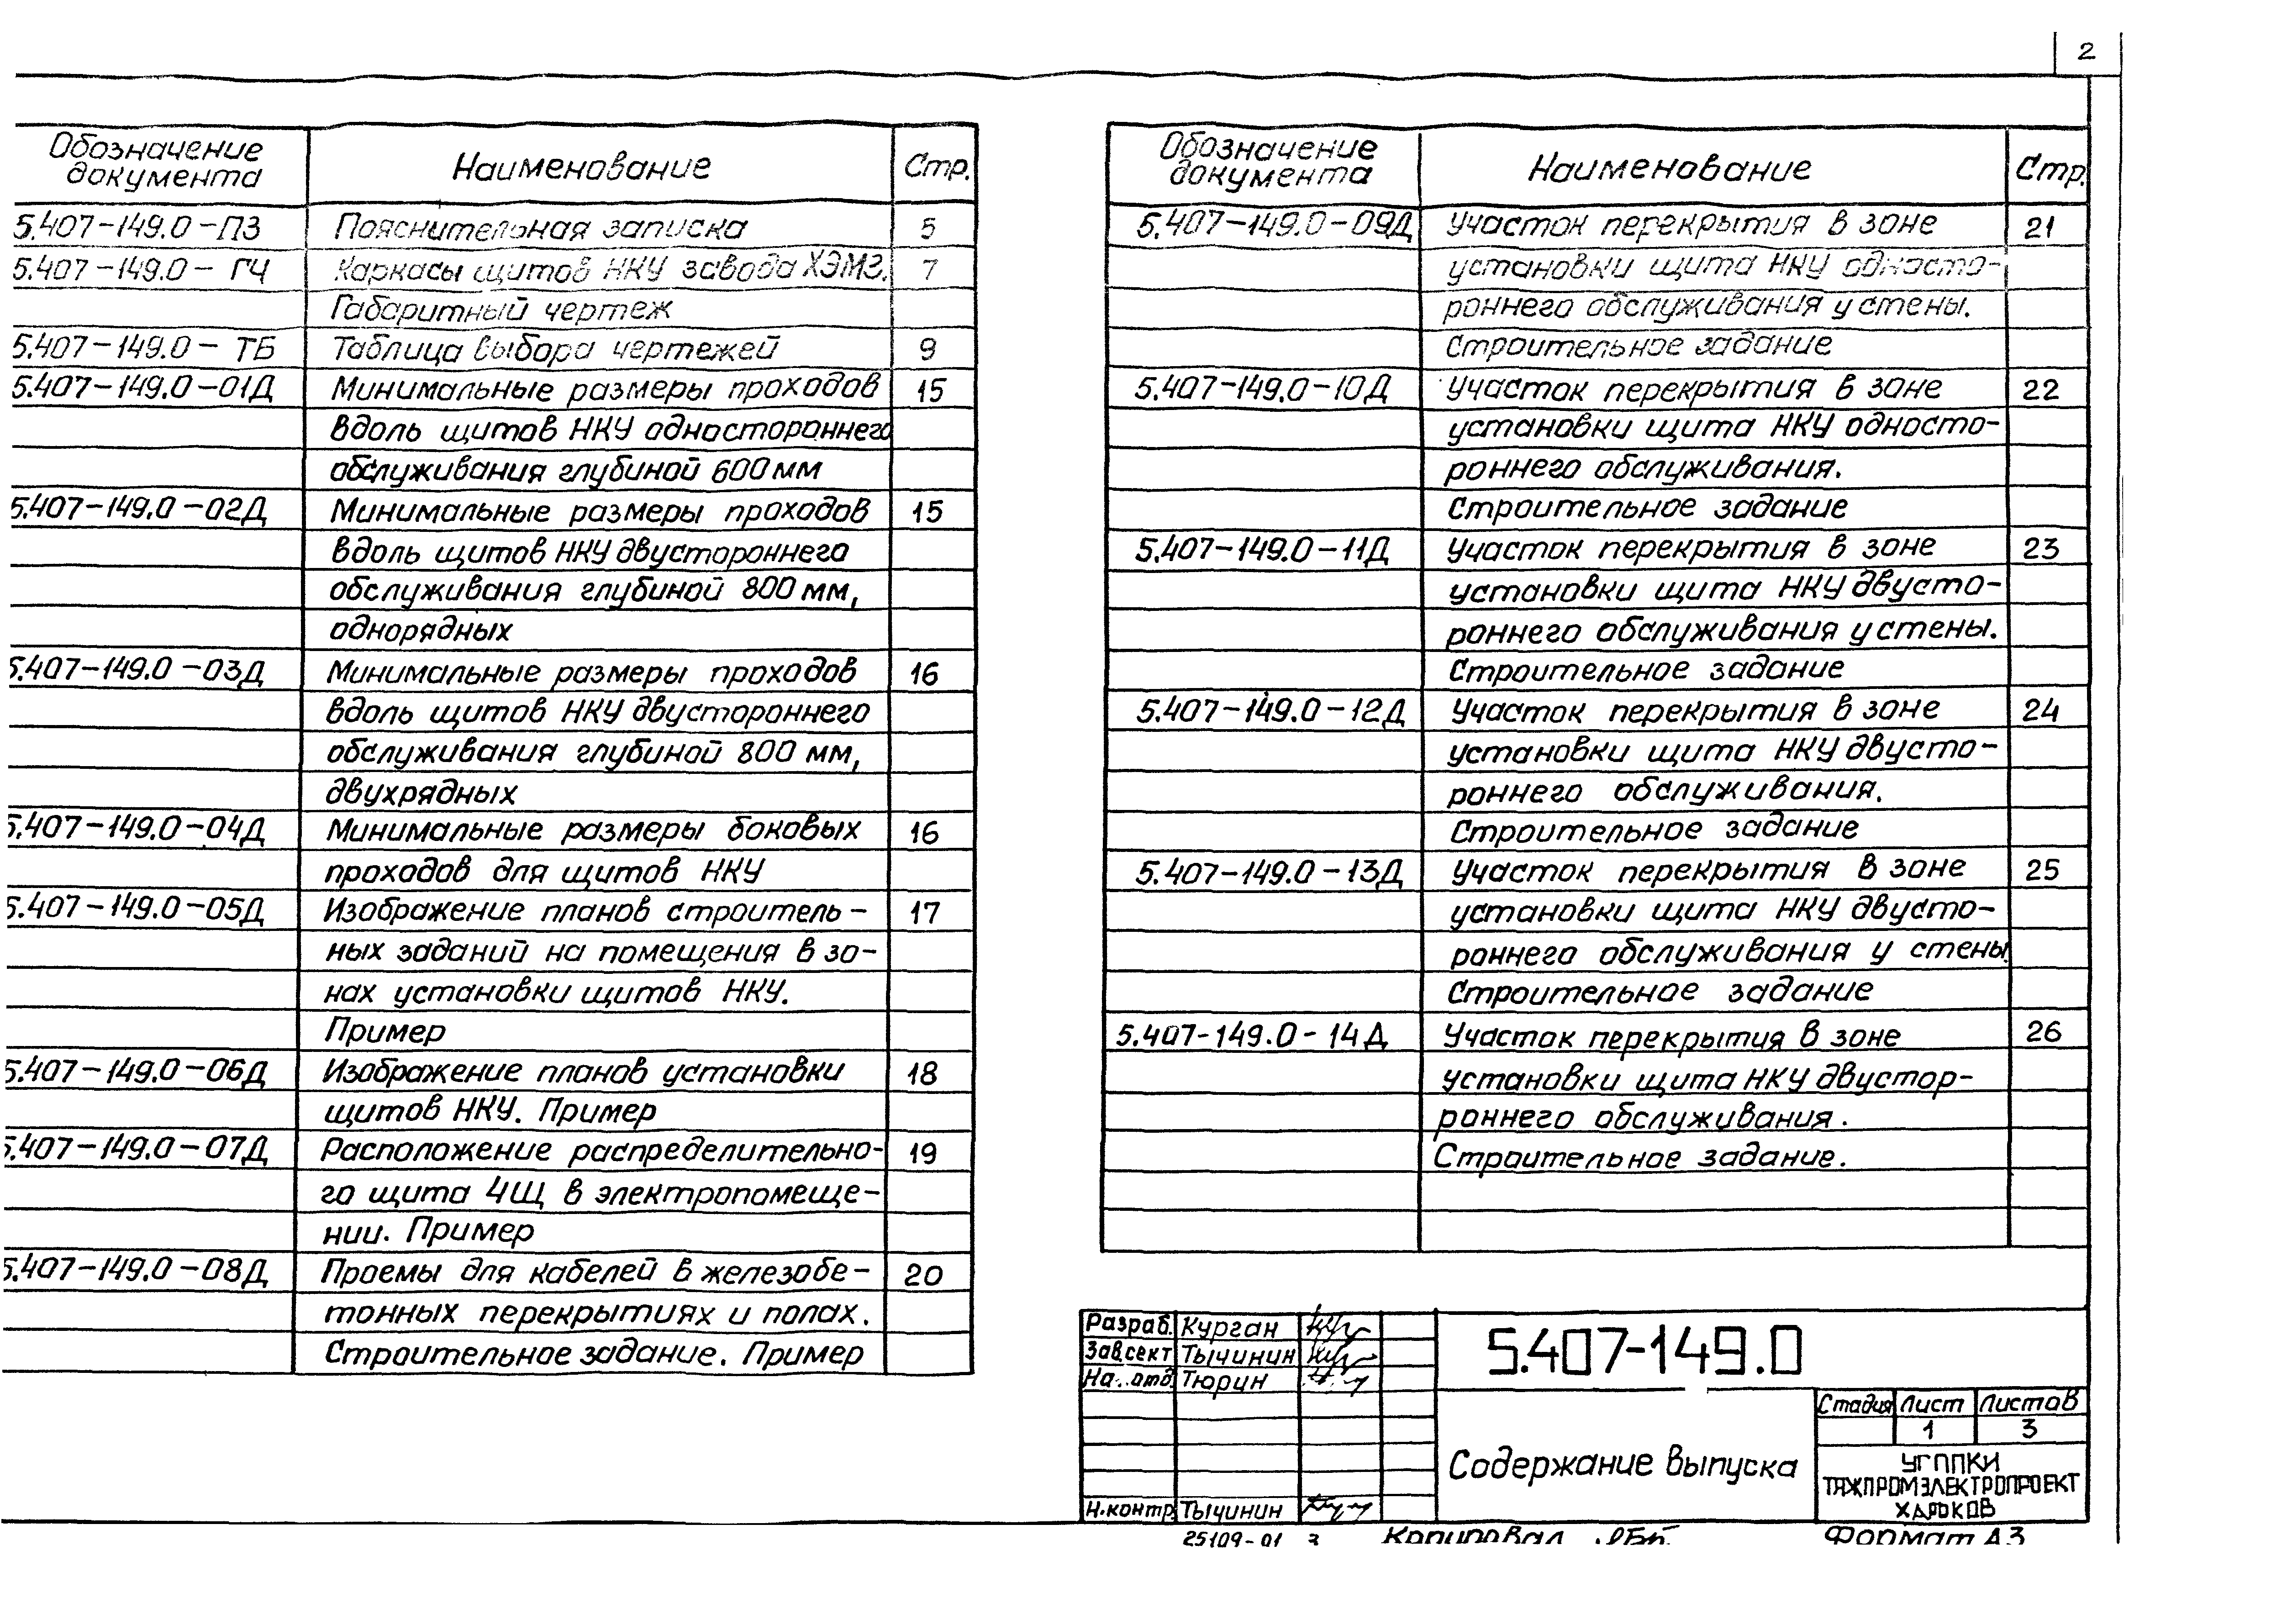 2
Обозначение документа Наименование Стр.
5.407-149.0-ПЗ Пояснительная записка 5
5.407-149.0-ГЧ Каркасы щитов НКУ завода ХЭМЗ. 7
Габаритный чертеж
5.407-149.0-ТБ Таблица выбора чертежей 9
5.407-149.0-01Д Минимальные размеры проходов 15
вдоль щитов НКУ одностороннего
обслуживания глубиной 600 мм
5.407-149.0-02Д Минимальные размеры проходов 15
вдоль щитов НКУ двустороннего
обслуживания глубиной 800 мм,
однорядных
5.407-149.0-03Д Минимальные размеры проходов 16
вдоль щитов НКУ двустороннего
обслуживания глубиной 800 мм,
двухрядных
5.407-149.0-04Д Минимальные размеры боковых 16
проходов для щитов НКУ
5.407-149.0-05Д Изображение планов строитель- 17
ных заданий на помещения в зо-
нах установки щитов НКУ.
Пример
5.407-149.0-06Д Изображение планов установки 18
щитов НКУ. Пример
5.407-149.0-07Д Расположение распределительно- 19
го щита 4Щ в электропомеще-
нии. Пример
5.407-149.0-08Д Проемы для кабелей в железобе- 20
тонных перекрытиях и полах.
Строительное задание. Пример
Обозначение документа Наименование Стр.
5.407-149.0-09Д Участок перекрытия в зоне 21
установки щита НКУ односто-
роннего обслуживания у стены.
Строительное задание
5.407-149.0-10Д Участок перекрытия в зоне 22
установки щита НКУ односто-
роннего обслуживания.
Строительное задание
5.407-149.0-11Д Участок перекрытия в зоне 23
установки щита НКУ двусто-
роннего обслуживания у стены.
Строительное задание
5.407-149.0-12Д Участок перекрытия в зоне 24
установки щита НКУ двусто-
роннего обслуживания.
Строительное задание
5.407-149.0-13Д Участок перекрытия в зоне 25
установки щита НКУ двусто-
роннего обслуживания у стены
Строительное задание
5.407-149.0-14Д Участок перекрытия в зоне 26
установки щита НКУ двустор-
роннего обслуживания.
Строительное задание.
Разраб. Курган
Зав.сект Тычинин
На. отд Тюрин
Н.контр. Тычинин
5.407-149.0
Содержание выпуска
Стадия Лист Листов
1 3
УГППКИ
ТЯЖПРОМЭЛЕКТРОПРОЕКТ
ХАРЬКОВ
25109-01 3 Копировал Формат А3